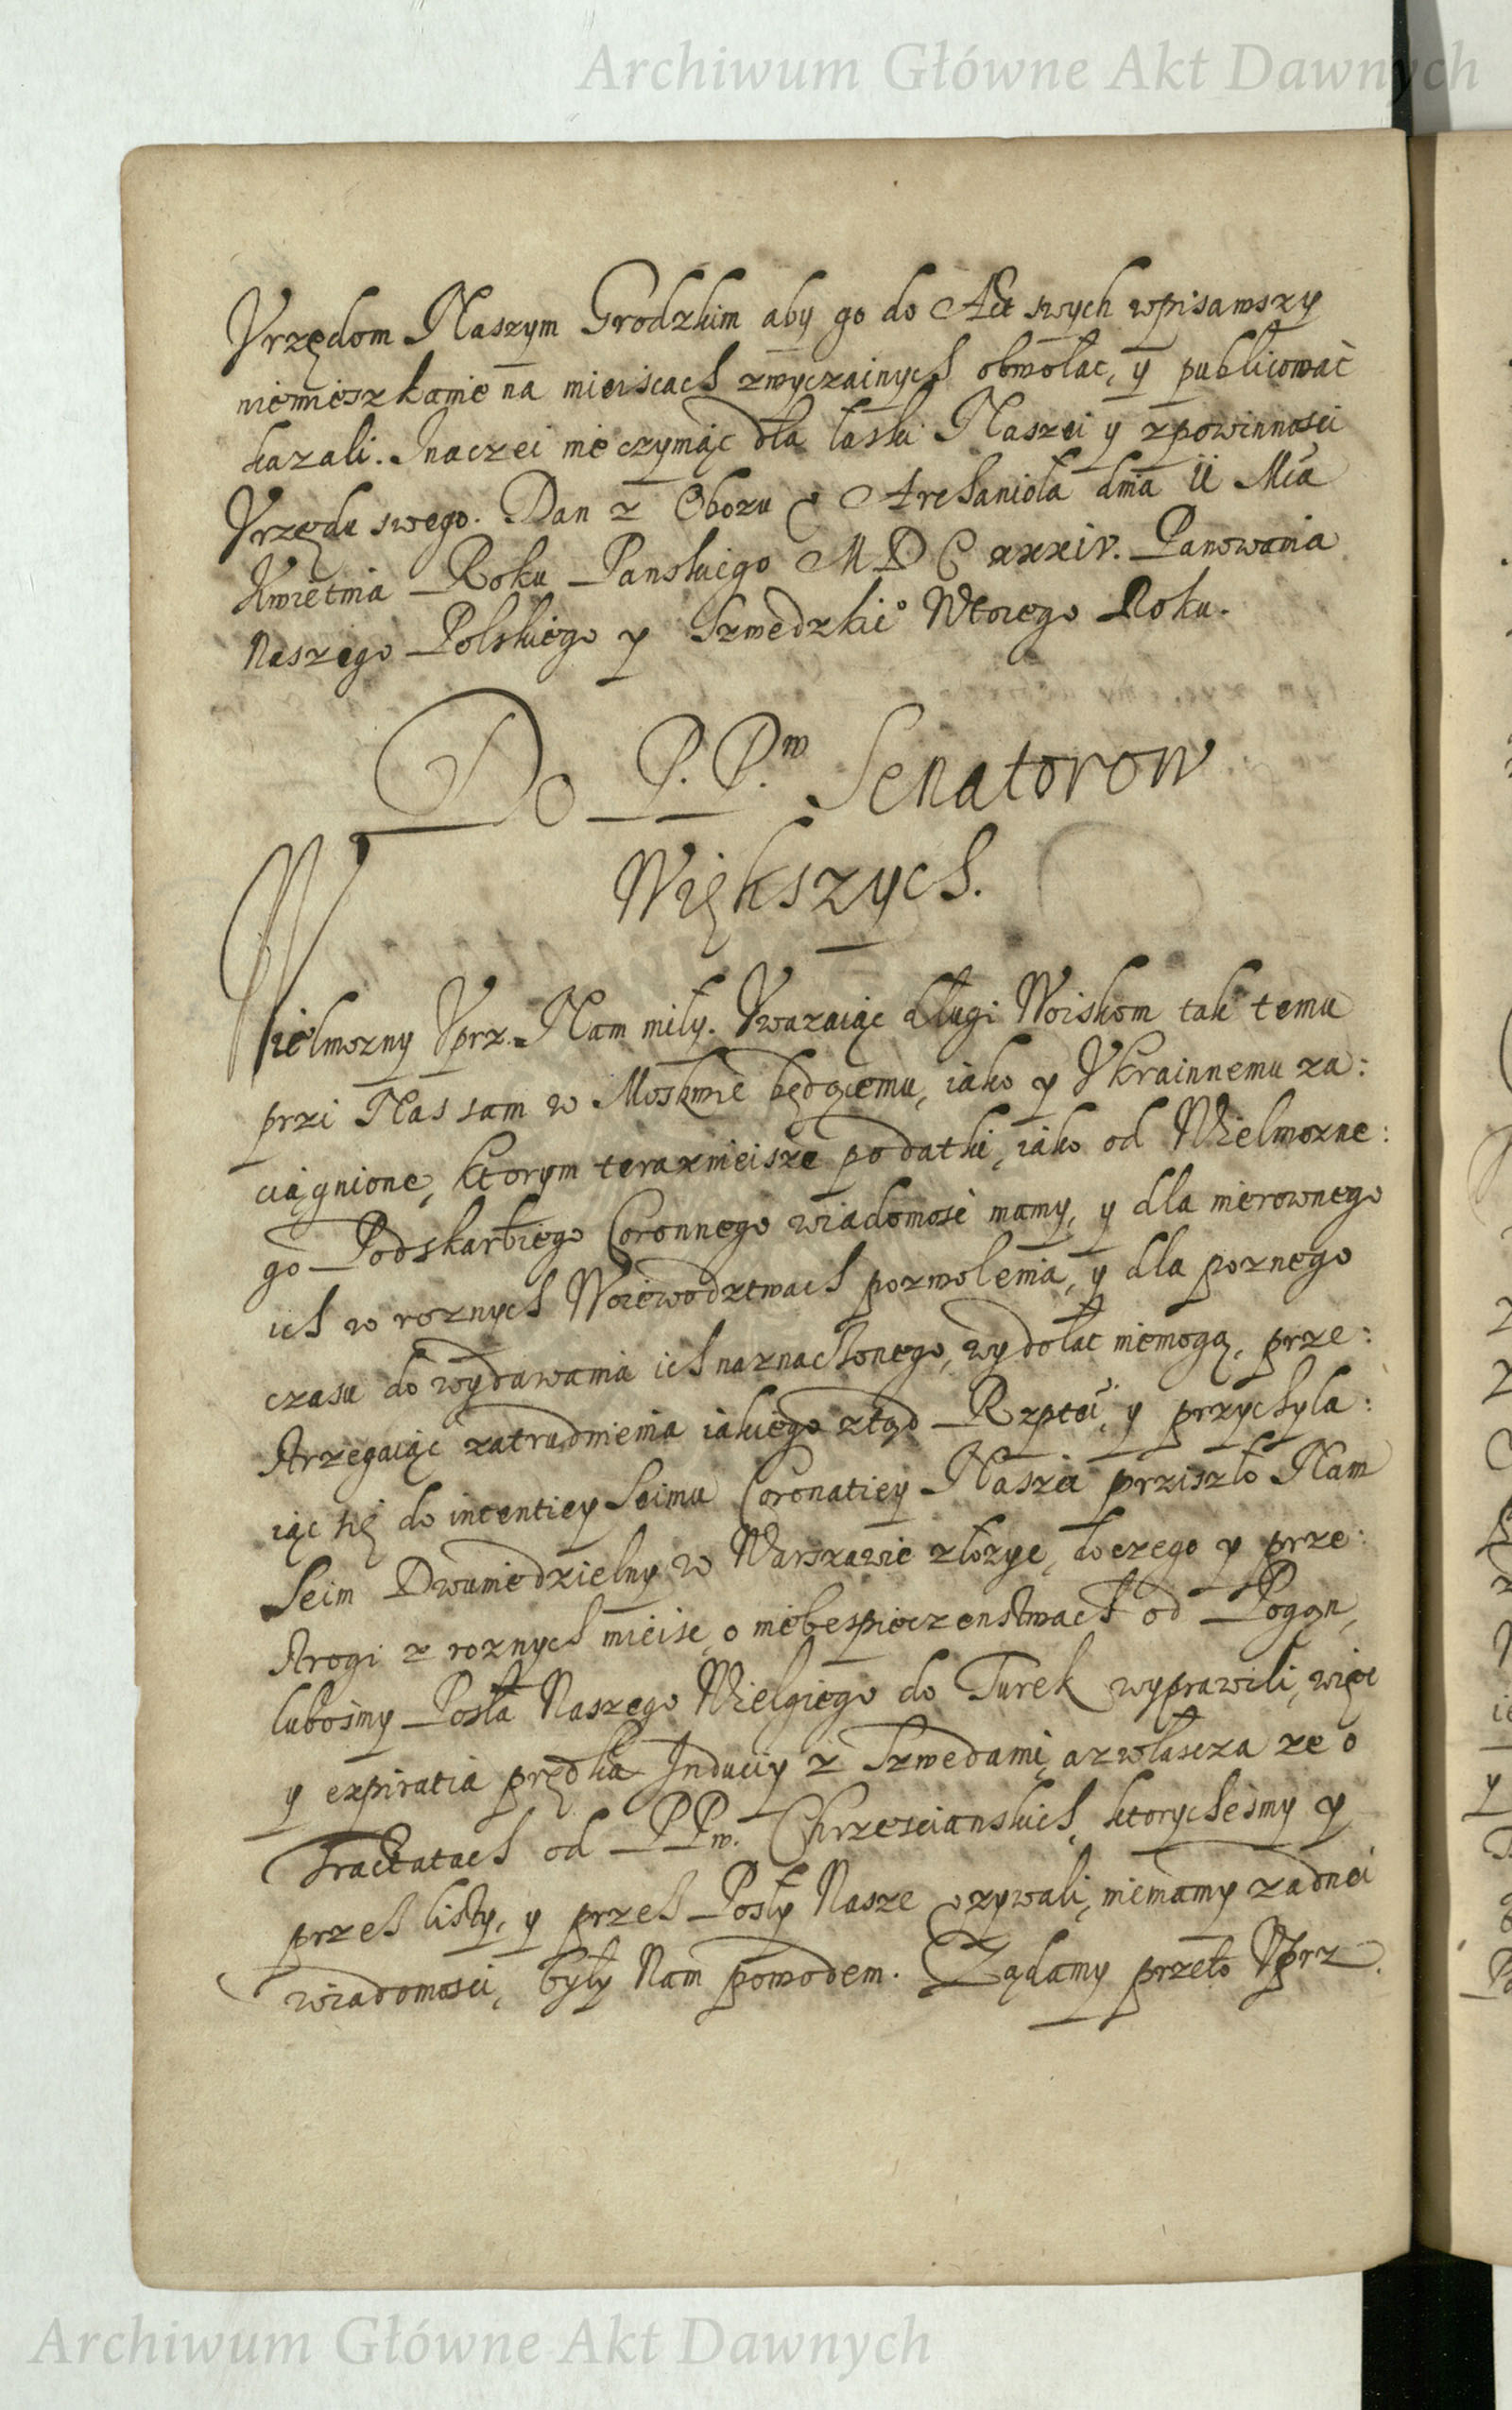 Archiwum Główne Akt Dawnych
Vrzędom Naszym Grodzkim aby go do Act swych wpisawszy
niemieszkanie na mieiscach zwyczainych obwołac, y publicować
kazali. Inaczei nie czyniąc dla łaski Naszei y z powinności
Vrzędu swego. Dan z Obozu Archanioła dnia ii Mca
Kwietnia Roku Panskiego MDCxxxiv. Panowania
Naszego Polskiego y Szwedzkie° Wtorego Roku.
Do P. P.w Senatorow
Większych.
Wielmozny Vprz. Nam miły. Vwazaiąc długi Woiskom tak temu
przi Nas sam w Moskwie będącemu, iako y Vkrainnemu za:
ciągnione, ktorym teraznieisze podatki, iako od Wielmozne:
go Podskarbiego Coronnego wiadomość mamy, y dla nierownego
ich w roznych Woiewodztwach pozwolenia, y dla poznego
czasu do wydawania ich naznaczonego, wydołac niemogą, prze:
strzegaiąc zatrudnienia iakiego ztąd Rzptei, y przychyla:
iąc się do intentiey Seimu Coronatiey Naszei przyszło Nam
Seim Dwuniedzielny w Warszawie złozyc, do czego y prze:
strogi z roznych mieisc, o niebespieczenstwach od Pogan,
lubośmy Posła Naszego Wielgiego do Turek wyprawili, więc
y expiratia prędka Induciy z Szwedami, azwłascza ze o
Tractatach od PPw. Chrzescianskich, ktorycheśmy y
przes listy, y przes Posły Nasze wzywali, niemamy zadnei
wiadomosci, były Nam powodem. Ządamy przeto Vprz.
Archiwum Główne Akt Dawnych